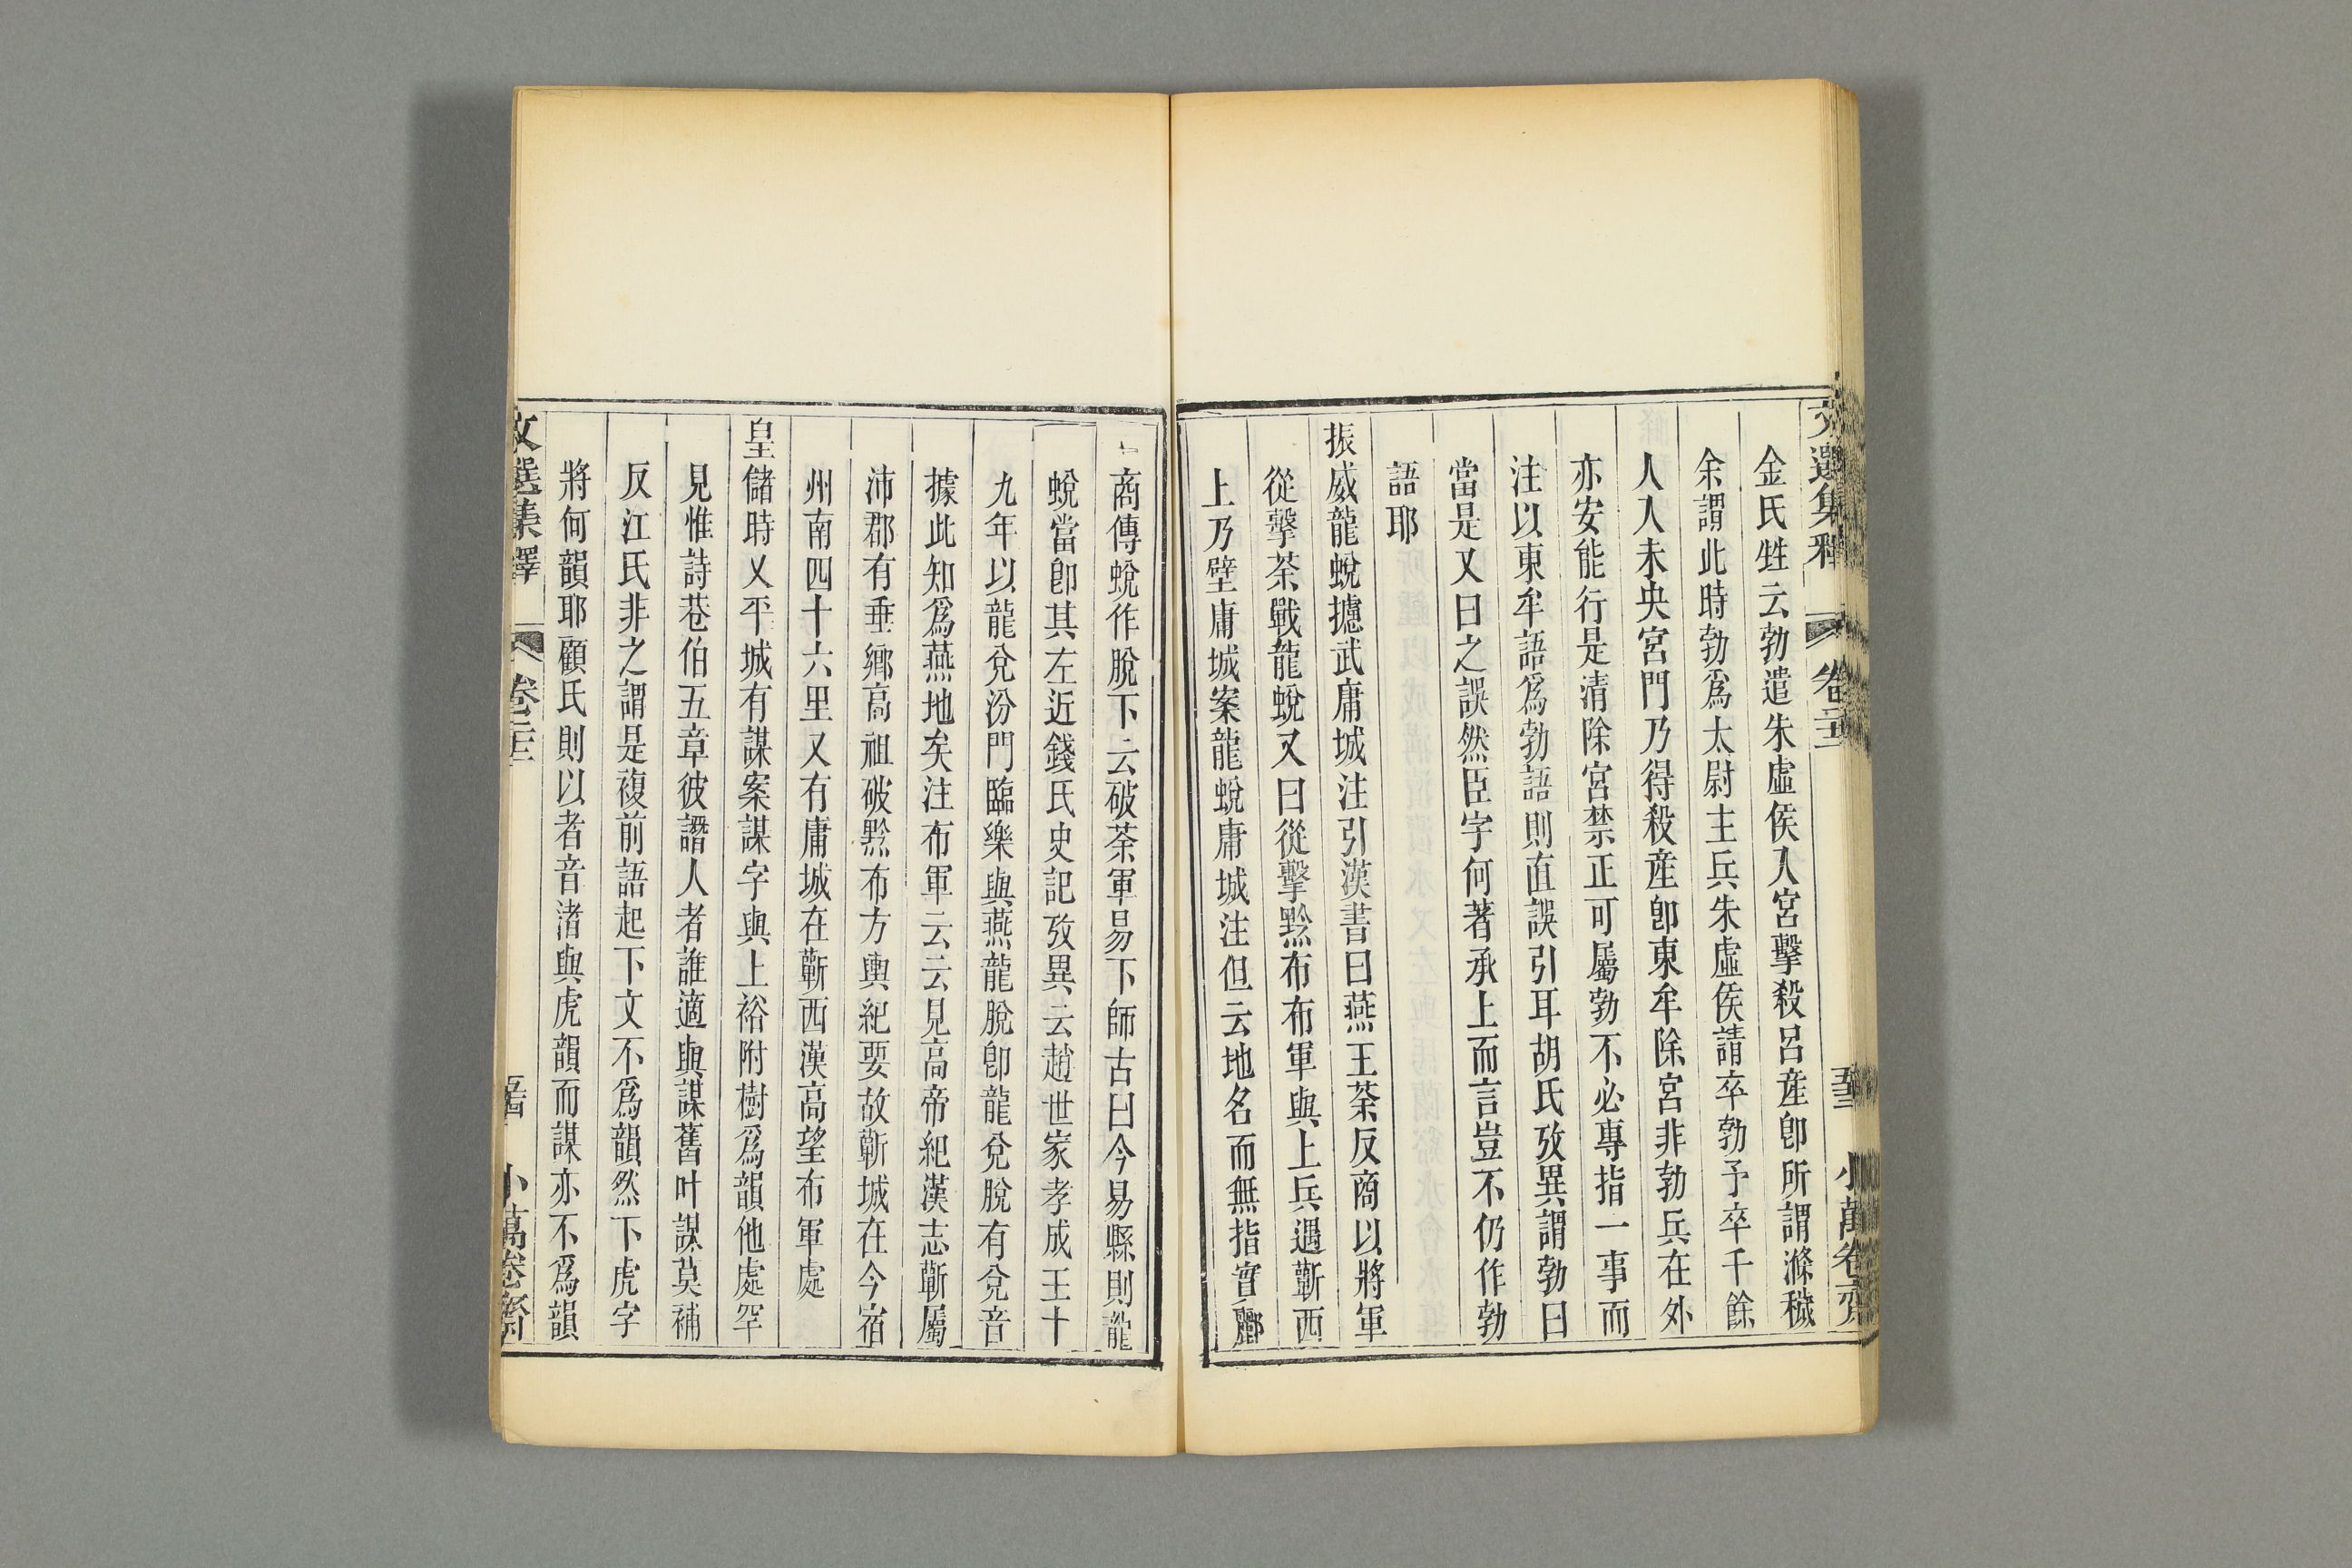 文選集釋 卷二十三 小萬卷齋
金氏甡云勃遣朱虛侯入宮擊殺呂産卽所謂滌穢
余謂此時勃爲太尉主兵朱虛侯請卒勃予卒千餘
人入未央宮門乃得殺産卽東牟除宮非勃兵在外
亦安能行是清除宮禁正可屬勃不必專指一事而
注以東牟語爲勃語則直誤引耳胡氏攷異謂勃曰
當是又曰之誤然臣字何著承上而言豈不仍作勃
語耶
振威龍蛻攄武庸城注引漢書曰燕王荼反商以將軍
從擊荼戰龍蛻又曰從擊黥布布軍與上兵遇蘄西
上乃壁庸城案龍蛻庸城注但云地名而無指實酈
商傳蛻作脫下云破荼軍易下師古曰今易縣則龍
蛻當卽其左近錢氏史記攷異云趙世家孝成王十
九年以龍兌汾門臨樂與燕龍脫卽龍兌脫有兌音
據此知爲燕地矣注布軍云云見高帝紀漢志蘄屬
沛郡有垂鄉高祖破黥布方輿紀要故蘄城在今宿
州南四十六里又有庸城在蘄西漢高望布軍處
皇儲時乂平城有謀案謀字與上裕附樹爲韻他處罕
見惟詩巷伯五章彼譖人者誰適與謀舊叶謀莫補
反江氏非之謂是複前語起下文不爲韻然下虎字
將何韻耶顧氏則以者音渚與虎韻而謀亦不爲韻
文選集釋 卷二十三 小萬卷齋